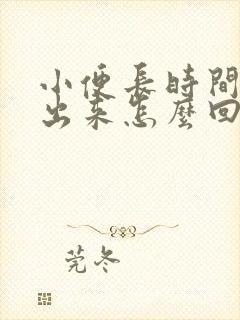 小便長時間
出来怎麼回
莞冬